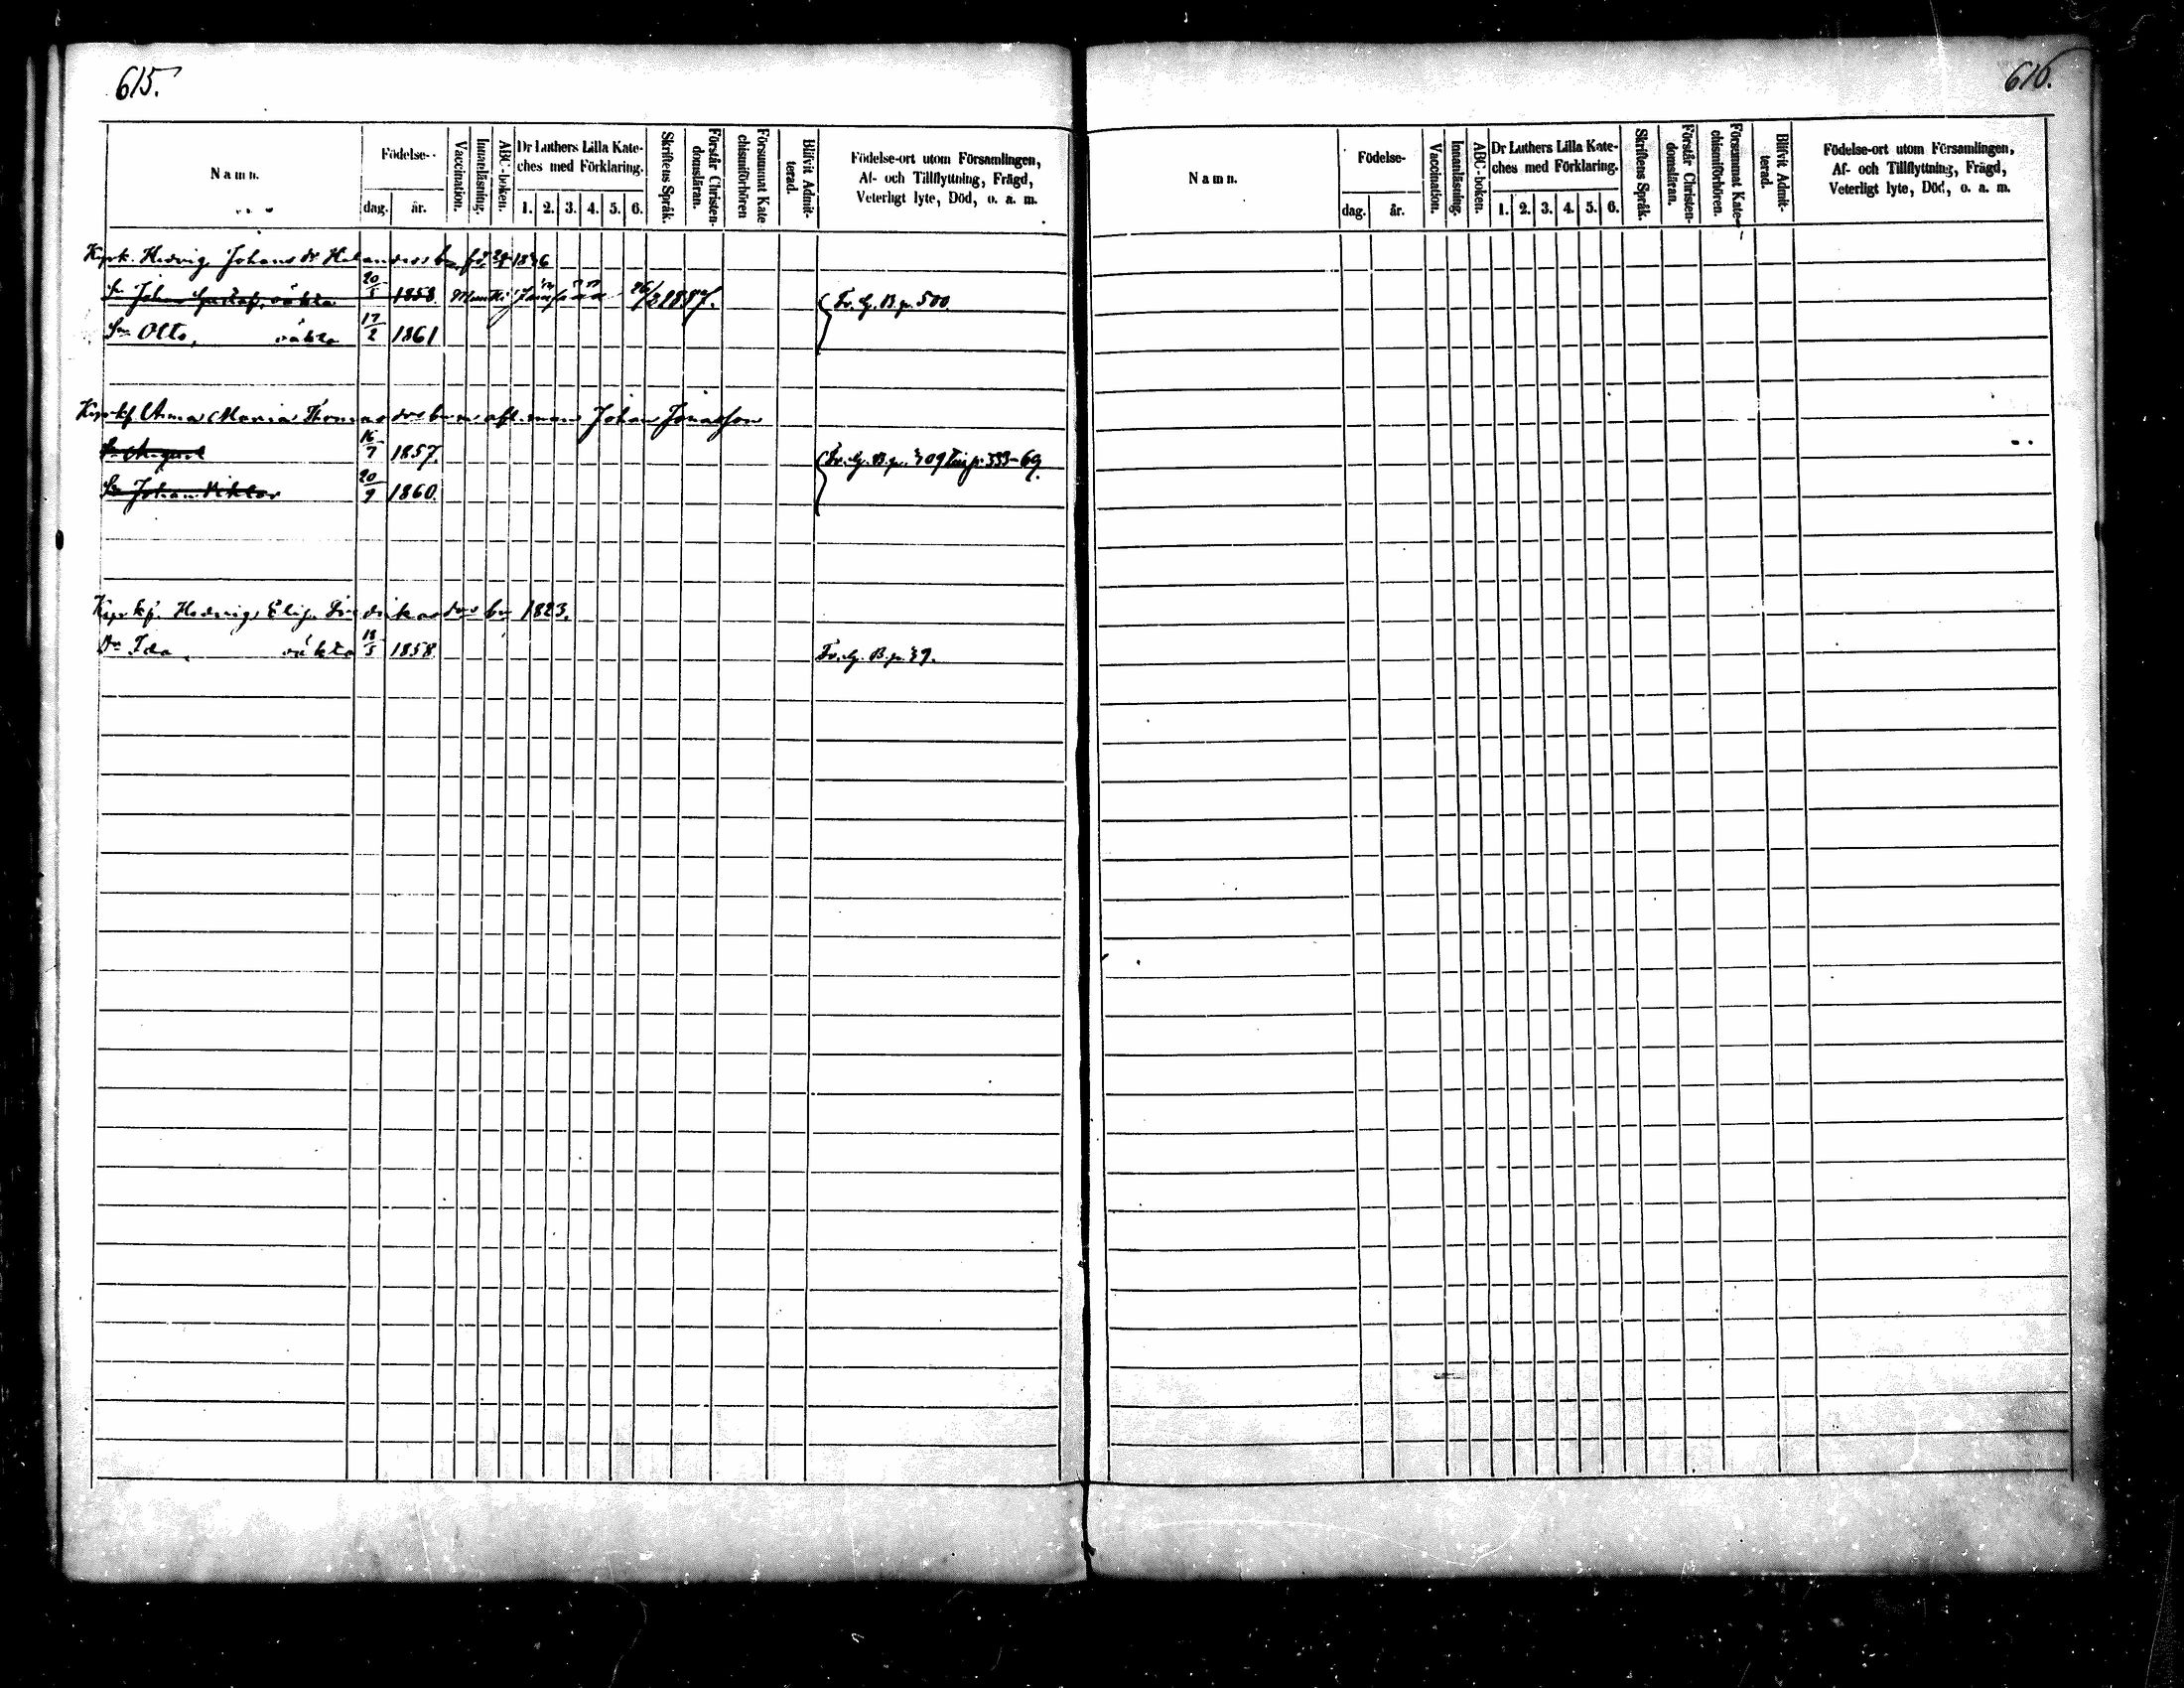 615.
Namn.
Födelse-
dag.
år.
Vaccination.
Innanläsning.
ABC-boken.
Dr Luthers Lilla Kate-
ches med Förklaring.
1. 2. 3. 4. 5. 6.
Skriftens Språk.
Förstår Christen-
domsläran.
Försummat Kate-
chismiförhören
Blifvit Admit-
terad.
Födelse-ort utom Församlingen,
Af- och Tillflyttning, Frägd,
Veterligt lyte, Död, o. a. m.
Hedvig Johans dr
Sn Johan Gustaf, oäkta 20/5 1858 Fr. G. B. p. 500.
Sn Otto, oäkta 17/2 1861
Anna Maria Thomas Johan
Sn August 16/7 1857.
Sn Johan Viktor 20/9 1860.
Hedvig 1823.
Dr Ida, oäkta 18/5 1858 Fr. G. B. p.
616.
Namn.
Födelse-
dag.
år.
Vaccination.
Innanläsning.
ABC-boken.
Dr Luthers Lilla Kate-
ches med Förklaring.
1. 2. 3. 4. 5. 6.
Skriftens Språk.
Förstår Christen-
domsläran.
Försummat Kate-
chismiförhören.
Blifvit Admit-
terad.
Födelse-ort utom Församlingen,
Af- och Tillflyttning, Frägd,
Veterligt lyte, Död, o. a. m.